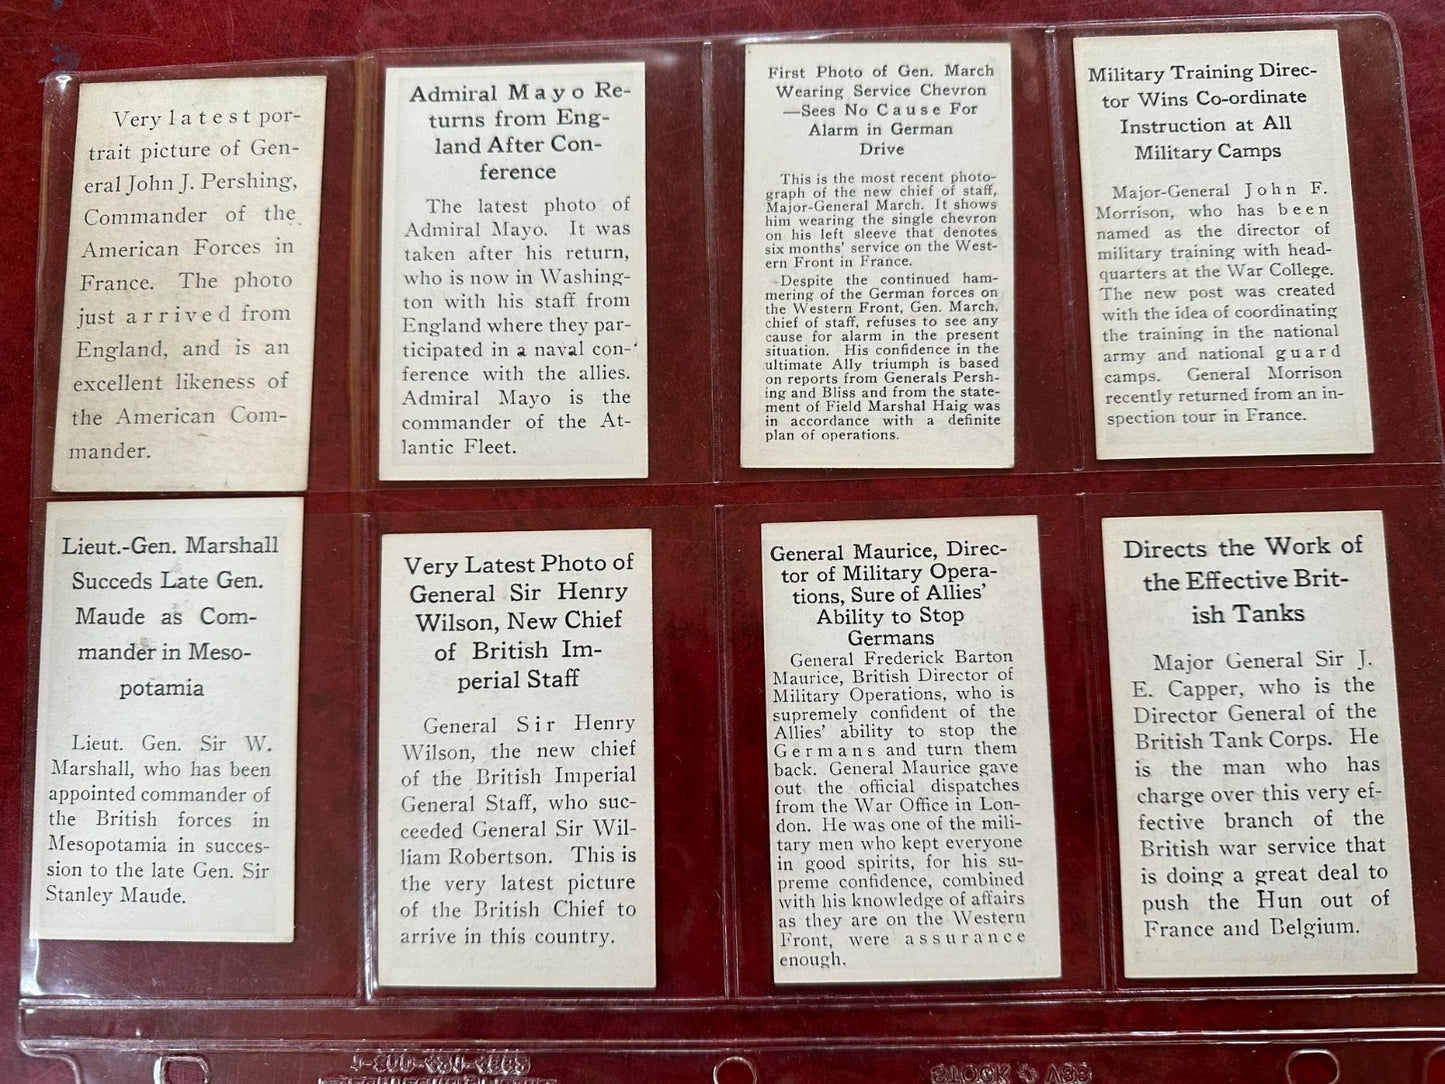 Very latest por-
trait picture of Gen-
eral John J. Pershing,
Commander of the
American Forces in
France. The photo
just arrived from
England, and is an
excellent likeness of
the American Com-
mander.
Admiral Mayo Re-
turns from Eng-
land After Con-
ference
The latest photo of
Admiral Mayo. It was
taken after his return,
who is now in Washing-
ton with his staff from
England where they par-
ticipated in a naval con-
ference with the allies.
Admiral Mayo is the
commander of the At-
lantic Fleet.
First Photo of Gen. March
Wearing Service Chevron
—Sees No Cause For
Alarm in German
Drive
This is the most recent photo-
graph of the new chief of staff,
Major-General March. It shows
him wearing the single chevron
on his left sleeve that denotes
six months' service on the West-
ern Front in France.
Despite the continued ham-
mering of the German forces on
the Western Front, Gen. March,
chief of staff, refuses to see any
cause for alarm in the present
situation. His confidence in the
ultimate Ally triumph is based
on reports from Generals Persh-
ing and Bliss and from the state-
ment of Field Marshal Haig was
in accordance with a definite
plan of operations.
Military Training Direc-
tor Wins Co-ordinate
Instruction at All
Military Camps
Major-General John F.
Morrison, who has been
named as the director of
military training with head-
quarters at the War College.
The new post was created
with the idea of coordinating
the training in the national
army and national guard
camps. General Morrison
recently returned from an in-
spection tour in France.
Lieut.-Gen. Marshall
Succeds Late Gen.
Maude as Com-
mander in Meso-
potamia
Lieut. Gen. Sir W.
Marshall, who has been
appointed commander of
the British forces in
Mesopotamia in succes-
sion to the late Gen. Sir
Stanley Maude.
Very Latest Photo of
General Sir Henry
Wilson, New Chief
of British Im-
perial Staff
General Sir Henry
Wilson, the new chief
of the British Imperial
General Staff, who suc-
ceeded General Sir Wil-
liam Robertson. This is
the very latest picture
of the British Chief to
arrive in this country.
General Maurice, Direc-
tor of Military Opera-
tions, Sure of Allies'
Ability to Stop
Germans
General Frederick Barton
Maurice, British Director of
Military Operations, who is
supremely confident of the
Allies' ability to stop the
Germans and turn them
back. General Maurice gave
out the official dispatches
from the War Office in Lon-
don. He was one of the mili-
tary men who kept everyone
in good spirits, for his su-
preme confidence, combined
with his knowledge of affairs
as they are on the Western
Front, were assurance
enough.
Directs the Work of
the Effective Brit-
ish Tanks
Major General Sir J.
E. Capper, who is the
Director General of the
British Tank Corps. He
is the man who has
charge over this very ef-
fective branch of the
British war service that
is doing a great deal to
push the Hun out of
France and Belgium.